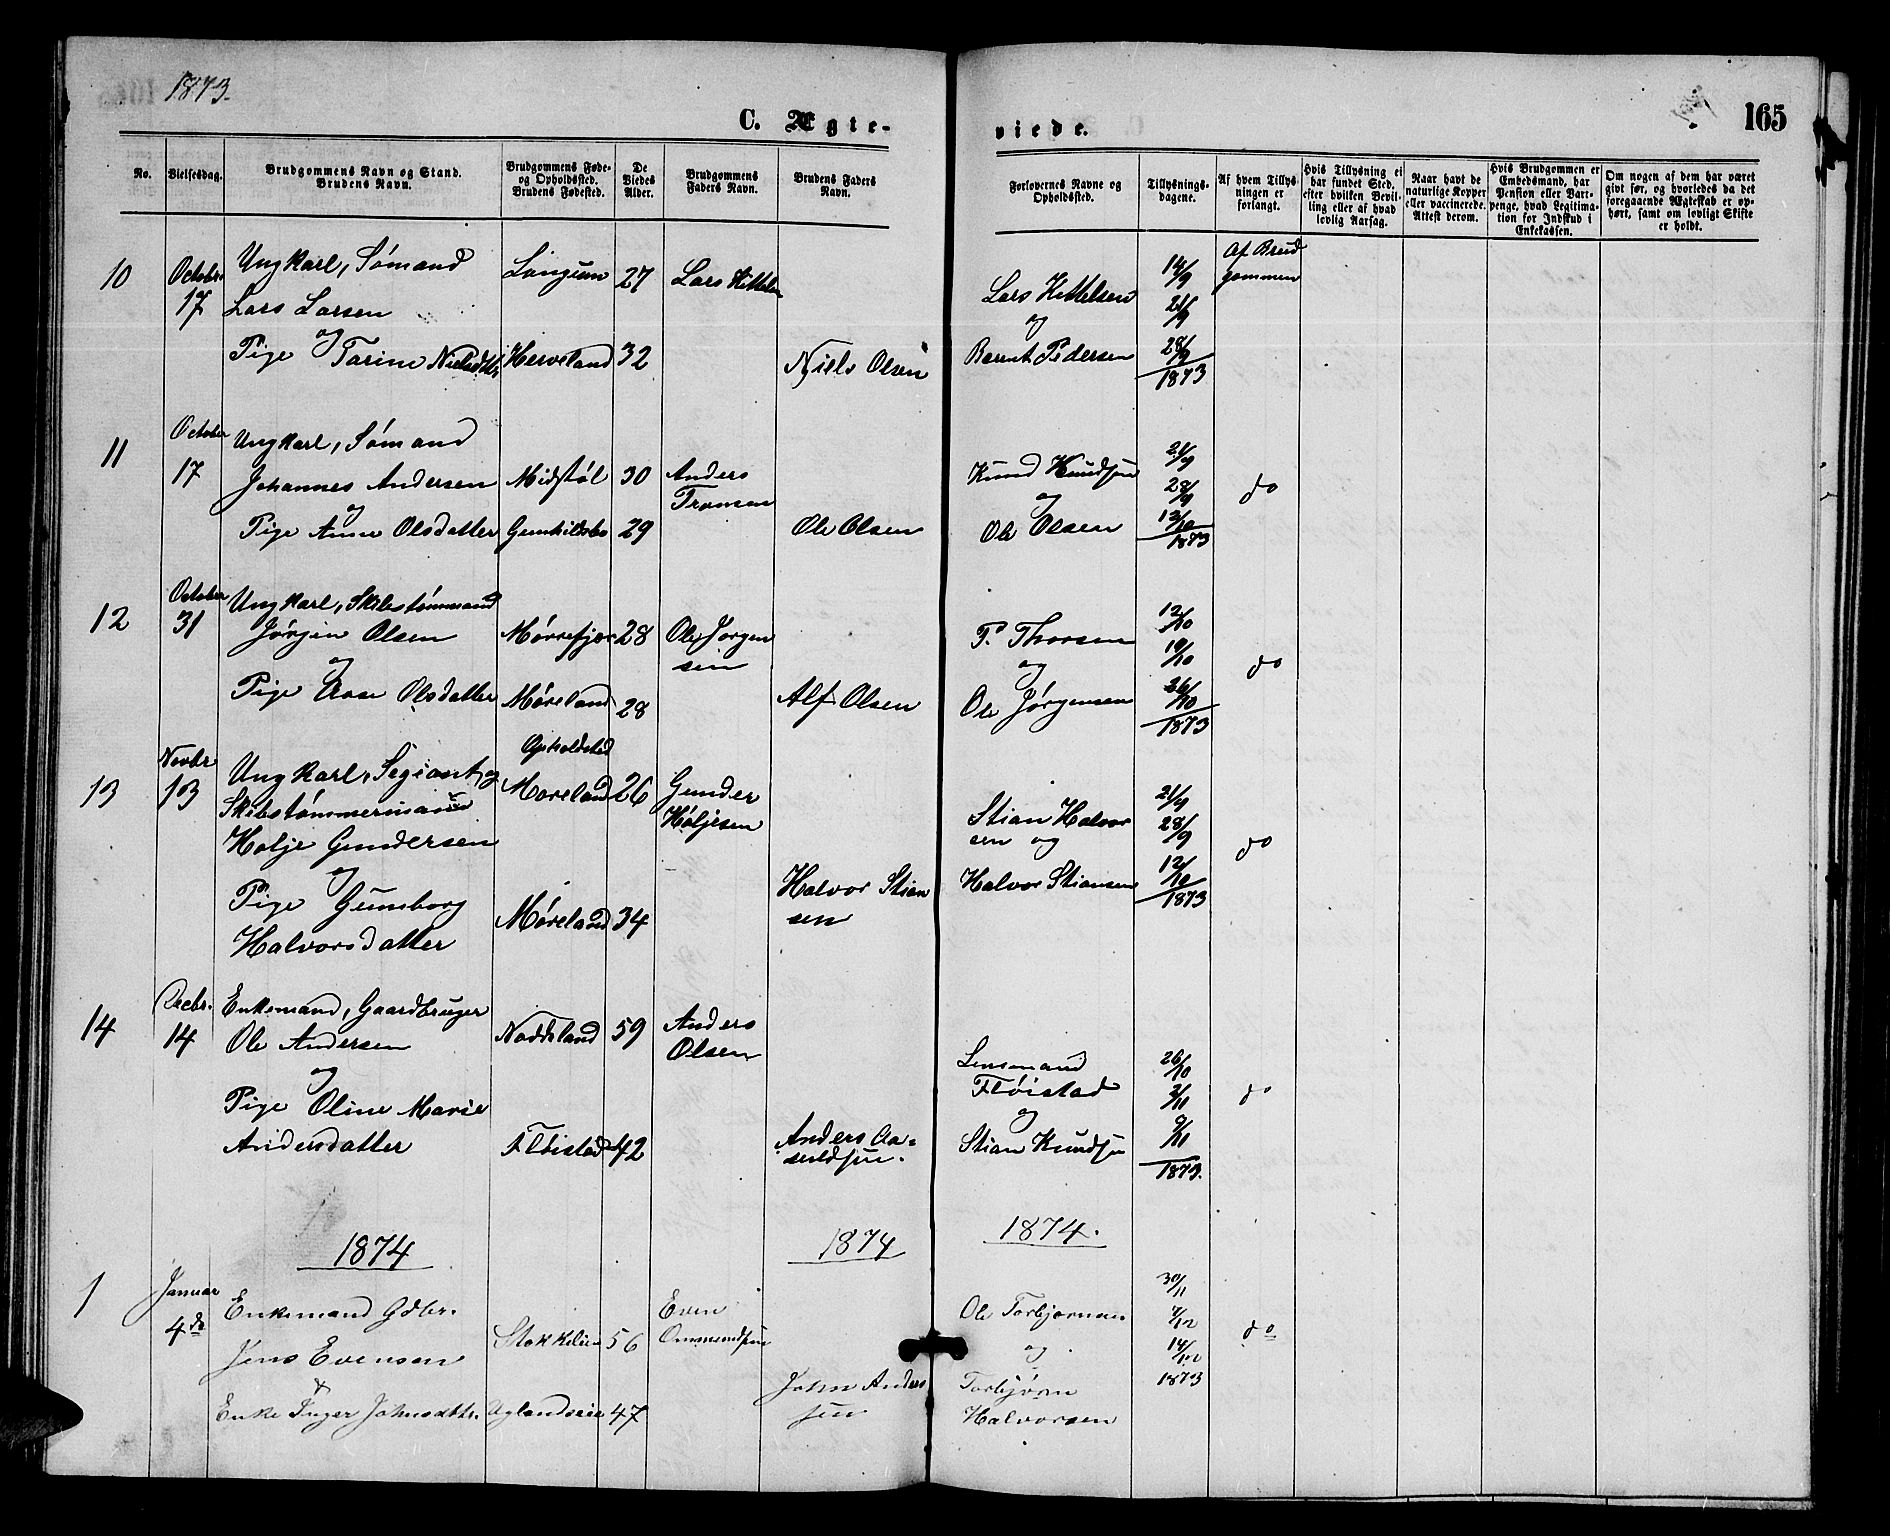 1873.
C. Ægte-
viede.
165
No.
Vielsesdag.
Brudgommens Navn og Stand.
Brudens Navn.
Brudgommens Føde-
og Opholdssted.
Brudens Fødested.
De
Viedes
Alder.
Brudgommens
Faders Navn.
Brudens Faders
Navn.
Forlovernes Navne og
Opholdssted.
Tillysnings-
dagene.
Af hvem Tillys-
ningen er
forlangt.
Hvis Tillysning ei
har fundet Sted,
efter hvilken Bevil-
ling eller af hvad
lovlig Aarsag.
Naar havt de
naturlige Kopper
eller vaccinerede.
Attest derom.
Hvis Brudgommen er
Embedsmand, har
Pension eller Vart-
penge, hvad Legitima-
tion for Indskud i
Enkekassen.
Om nogen af dem har været
givt før, og hvorledes da det
foregaaende Ægteskab er op-
hørt, samt om lovligt Skifte
er holdt.
10
Octobr.
17
Ungkarl, Sømand
Lars Larsen
og
Pige Tarine Nielsdtr
Longum
Herveland
27
32
Lars Kittelsen
Niels Olsen
Lars Kittelsen
og
Bernt Pedersen
14/9
21/9
28/9
1873
Af Brud
gommen
11
October
17
Ungkarl, Sømand
Johannes Andersen
og
Pige Anne Olsdatter
Midstøl
Gunhildsbo
30
29
Anders
Tromsen
Ole Olsen
Knud Knudsen
og
Ole Olsen
21/9
28/9
12/10
1873
do
12
October
31
Ungkarl, Skibstømmand
Jørgen Olsen
og
Pige Aase Olsdatter
Mørrefjær
Møreland
28
28
Ole Jørgen
sen
Alf Olsen
P. Thorsen
og
Ole Jørgensen
12/10
19/10
26/10
1873
do
13
Novbr
13
Ungkarl, Segiant og
Skibstømmermand
Holje Gundersen
og
Pige Gunborg
Halvorsdatter
Opholdsted
Moreland
Møreland
26
34
Gunder
Høljesen
Halvor Stian
sen
Stian Halvor
sen og
Halvor Stiansen
21/9
28/9
12/10
1873
do
14
Decbr.
14
Enkemand, Gaardbruger
Ole Andersen
og
Pige Oline Marie
Andersdatter
Noddeland
Fløistad
59
42
Anders
Olsen
Anders Aa-
suldsen.
Lensmand
Fløistad
og
Stian Knudsen
26/10
2/11
9/11
1873.
do
1874
1874
1874.
1
Januar
4de
Enkemand Gdbr.
Jens Evensen
&
Enke Inger Johnsdttr.
Stokkeleie
Uglandseie
56
47
Even
Ommundsen
John Anders
sen
Ole Torbjørnsen
og
Torbjørn
Halvorsen
30/11
7/12
14/12
1873
do